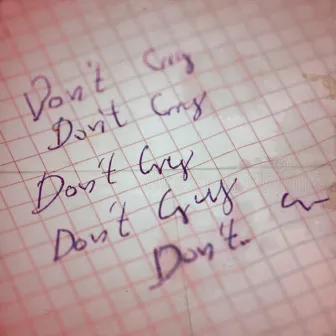 Don't Cry
Dont Cry
Don't Cry
Don't Cry
Don't.